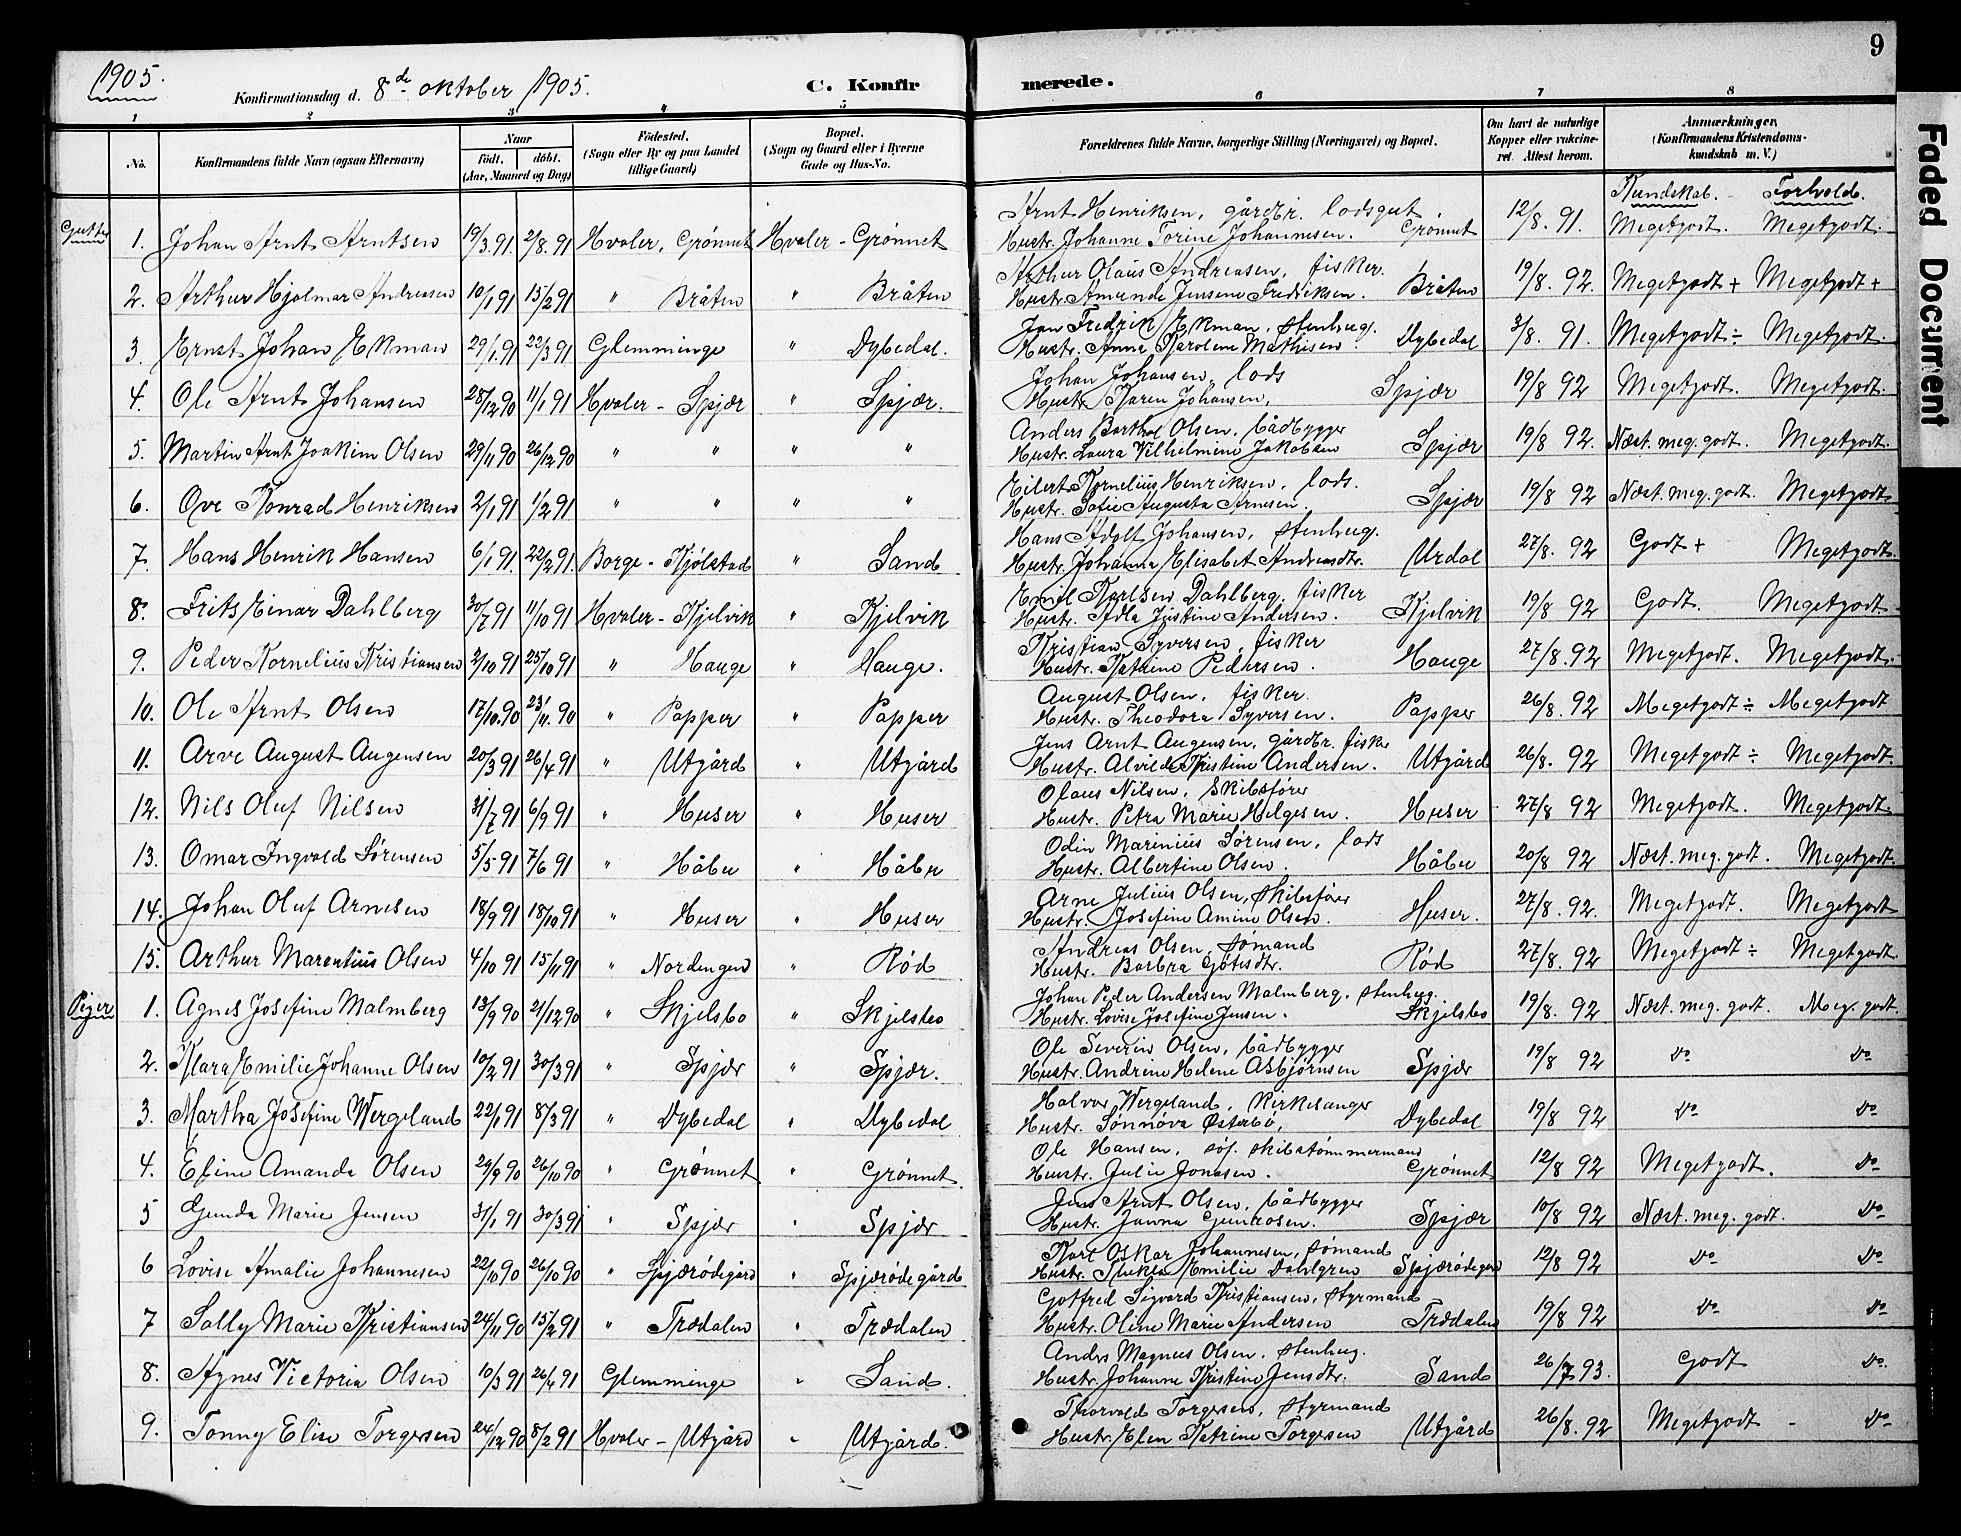 9
1905.
Konfirmationsdag d. 8de oktober 1905. C. Konfirmerede.
1 2 3 4 5 6 7 8
No. Konfirmandens fulde Navn (ogsaa Efternavn) Naar født, døbt. (Aar, Maaned og Dag) Fødested. (Sogn eller By og paa Landet tillige Gaard) Bopæl. (Sogn og Gaard eller i Byerne Gade og Hus-No. Forældrenes fulde Navne, borgerlige Stilling (Næringsvei) og Bopæl. Om havt de naturlige Kopper eller vakcineret. Attest herom. Anmærkninger, (Konfirmandens Kristendomskundskab m. V.)
Kundskab. - Forhold.
Gutter
1. Johan Arnt Arntsen 19/3 91 2/8 91 Hvaler, Grønnet Hvaler - Grønnet Arnt Henriksen, gårdbr. lodsgut. Hustr. Johanne Torine Johannesen. Grønnet 12/8. 91. Megetgodt. Megetgodt.
2. Arthur Hjalmar Andreasen 10/1 91 15/2 91 " Bråten " Bråten Arthur Olaus Andreasen, fisker. Hustr. Amunda Jensene Fredriksen. Bråten 19/8. 92. Megetgodt + Megetgodt +
3. Ernst Johan Ekman 29/1 91 22/3 91 Glemminge " Dybedal. Jon Fredrik Ekman, stenhug. Hustr. Anna Karolene Mathisen Dybedal 3/8. 91. Megetgodt ÷ Megetgodt.
4. Ole Arnt Johansen 28/12 90 11/1 91 Hvaler - Spjær " Spjær. Johan Johansen, lods Hustr. Karen Johansen. Spjær 19/8 92 Megetgodt. Megetgodt.
5. Martin Arnt Joakim Olsen 29/11 90 26/12 90 " " " " Anders Barthol Olsen, bådbygger Hustr. Laura Vilhelmine Jakobsen Spjær 19/8 92. Næst. meg. godt. Megetgodt.
6. Ove Konrad Henriksen 2/1 91 1/2 91 " " " " Eilert Kornelius Henriksen, lods. Hustr. Sofie Augusta Arnesen. Spjær 19/8 92 Næst. meg. godt. Megetgodt.
7. Hans Henrik Hansen 6/1 91. 22/2 91. Borge - Kjølstad " Sand Hans Adolf Johansen, stenhug. Hustr. Johanna Elisabet Andreasdtr. Urdal 27/8. 92 Godt + Megetgodt.
8. Frits Einar Dahlberg 30/7 91 11/10 91 Hvaler - Kjelvik " Kjelvik Emil Karlsen Dahlberg, fisker Hustr. Adla Justine Andersen. Kjelvik 19/8 92 Godt. Megetgodt.
9. Peder Kornelius Kristiansen 2/10 91 25/10 91 " Hauge " Hauge. Kristian Syversen, fisker Hustr. Katrine Pedersen. Hauge 27/8. 92 Megetgodt. Megetgodt.
10. Ole Arnt Olsen 17/10 90 23/11 90 " Papper " Papper August Olsen, fisker. Hustr. Theodora Syversen. Papper 26/8. 92 Megetgodt ÷ Megetgodt
11. Arve August Augensen 20/3 91 26/4 91 " Utgård " Utgård Jens Arnt Augensen, gårdbr. fisker Hustr. Alvilde Kristine Andersen. Utgård 26/8. 92 Megetgodt ÷ Megetgodt.
12. Nils Oluf Nilsen 31/7 91 6/9 91 " Huser " Huser Olaus Nilsen, skibsfører Hustr. Petra Marie Helgesen. Huser 27/8 92 Megetgodt. Megetgodt.
13. Omar Ingvald Sørensen 5/5 91 7/6 91 " Håbu " Håbu Odin Marinius Sørensen, lods Hustr. Albertine Olsen. Håbu 20/8 92 Næst. meg. godt. Megetgodt.
14. Johan Oluf Arnesen 18/9 91 18/10 91 " Huser " Huser Arne Julius Olsen, skibsfører Hustr. Josefine Amine Olsen. Huser. 27/8. 92. Megetgodt. Megetgodt
15. Arthur Marentius Olsen 4/10 91 15/11 91 " Nordengen " Rød Andreas Olsen, sømand Hustr. Barbra Gøtesdtr. Rød 27/8. 92 Megetgodt ÷ Megetgodt.
Piger
1. Agnes Josefine Malmberg 13/9 90 21/12 90 " Skjelsbo " Skjelsbo Johan Peder Andersen Malmberg, stenhug. Hustr. Lovise Josefine Jensen. Skjelsbo 19/8. 92 Næst. meg. godt. Meg. godt.
2. Klara Emilie Johanne Olsen 10/2 91 30/3 91 " Spjær " Spjær. Ole Severin Olsen, bådbygger Hustr. Andrine Helene Asbjørnsen Spjær 19/8 92 Do Do
3. Martha Josefine Wergeland 22/1 91 8/3 91 " Dybedal " Dybedal Halvor Wergeland, kirkesanger Hustr. Sønnøva Østerbø, Dybedal 19/8 92 Do Do
4. Eline Amanda Olsen 29/9 90 26/10 90 " Grønnet " Grønnet Ole Hansen, søf. skibstømmermand Hustr. Julie Jonasen. Grønnet 12/8 92 Megetgodt. Do
5 Gunda Marie Jensen 31/1 91 30/3 91 " Spjær " Spjær Jens Arnt Olsen, bådbygger Hustr. Janna Gunrosen. Spjær 10/8 92 Næst. meg. godt. Do
6 Lovise Amalie Johannesen 22/10 90 26/10 90 " Spjærødegård " Spjærødegård Karl Oskar Johannesen, sømand Hustr. Thekla Emilie Dahlgren Spjærødegård 12/8 92 Do Do
7 Solly Marie Kristiansen 24/11 90 15/2 91 " Trædalen " Trædalen Gotfred Sigvard Kristiansen, styrmand Hustr. Oline Marie Andersen Trædalen 19/8 92 Do Do
8. Agnes Victoria Olsen 10/3 91 26/4 91 Glemminge " Sand. Anders Magnus Olsen, stenhug. Hustr. Johanna Kristine Jensdtr. Sand 26/7 93. Godt Do.
9. Tonny Elise Torgersen 24/12 90 8/2 91 Hvaler - Utgård " Utgård. Thorvald Torgersen, styrmand Hustr. Elen Katrine Torgesen Utgård 26/8. 92 Megetgodt - Do
Faded Document